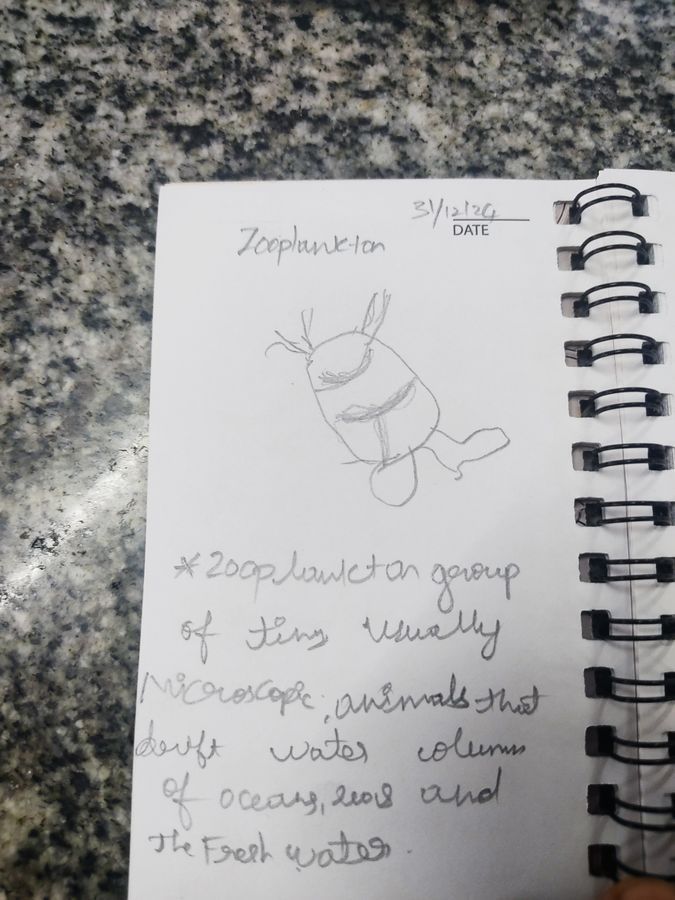 31/12/24
DATE
Zooplankton
*Zooplankton group
of tiny usually
Microscopic, animals that
drift water column
of oceans, seas and
The Fresh water.